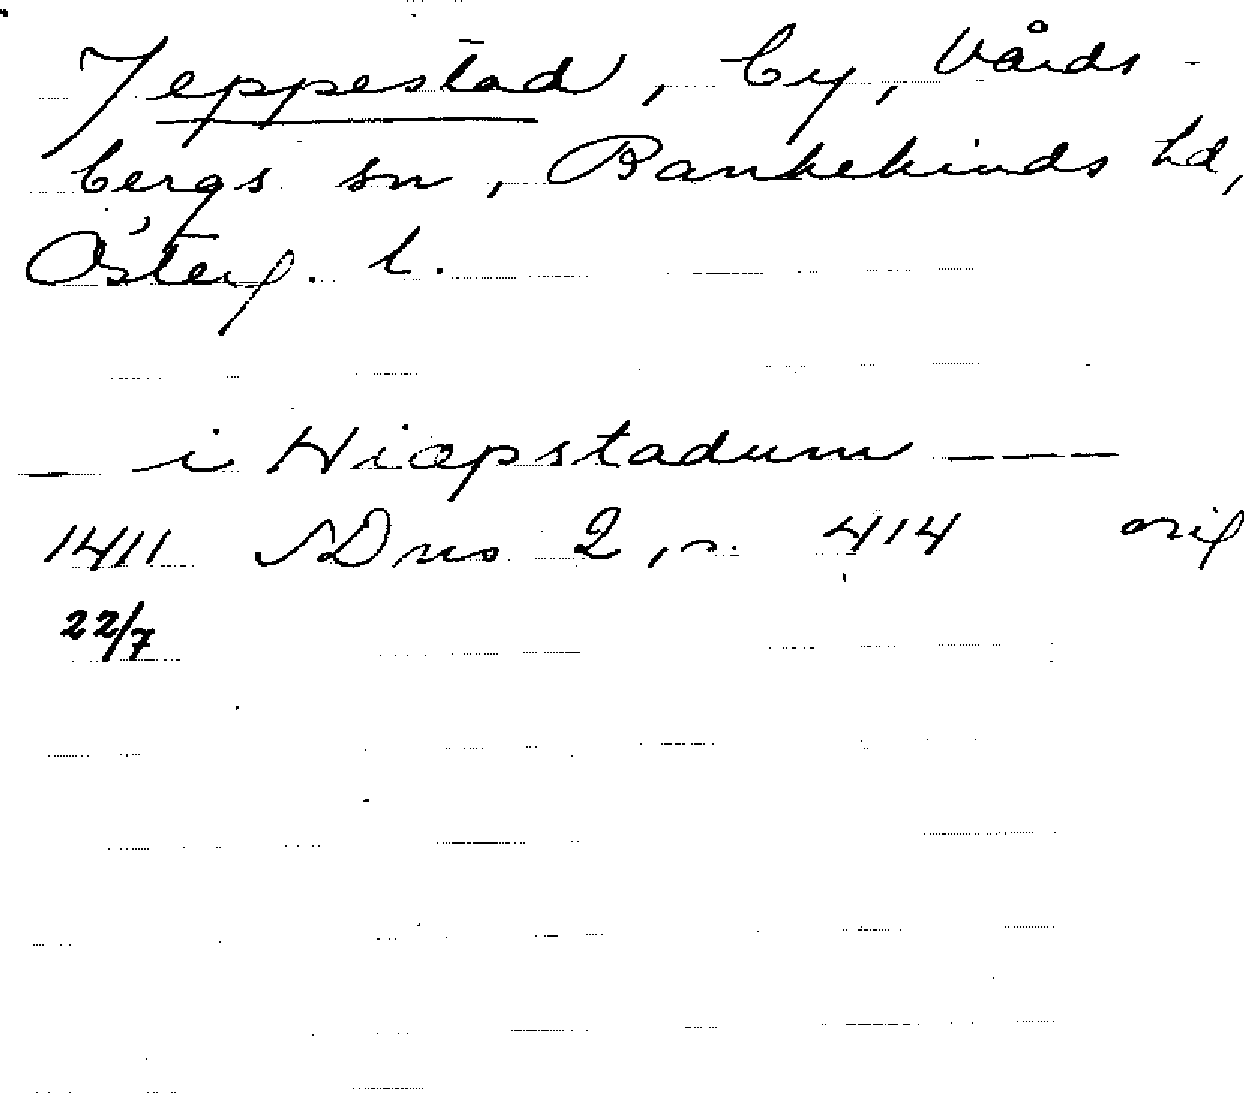 Jeppestad, by, Vårds-
bergs sn, Bankekinds hd,
Österg. l.
_ i Hiæpstadum ___
1411 SDns 2, s. 414 orig
22/7